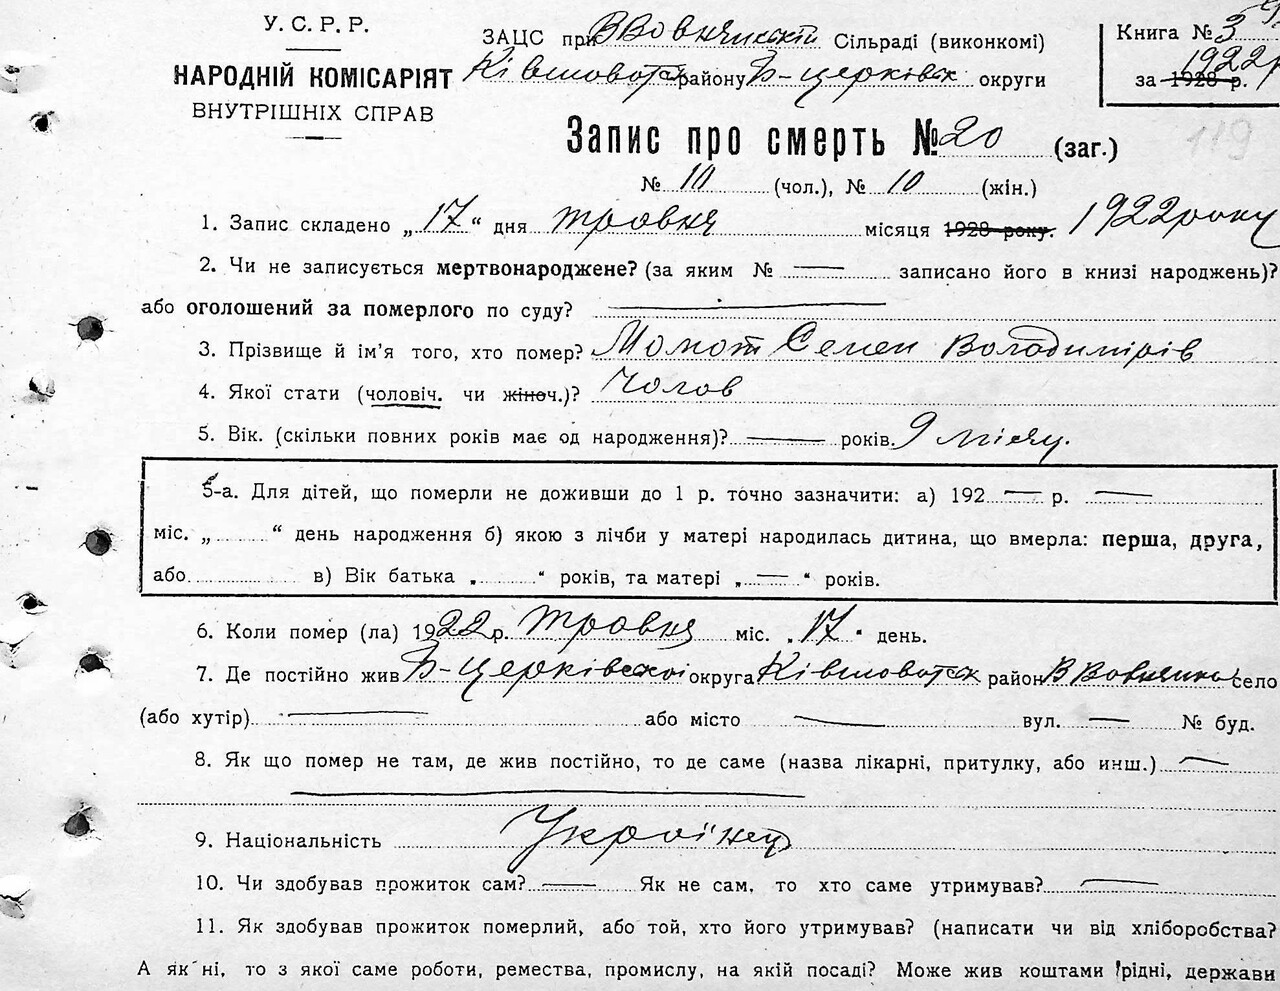 У. С. Р. Р.
НАРОДНІЙ КОМІСАРІЯТ
ВНУТРІШНІХ СПРАВ
ЗАЦС при Сільраді (виконкомі)
району Б-церківськ округи
Книга № 3
1922 р
за 1928 р.
119
Запис про смерть № 20 (заг.)
№ 10 (чол.), № 10 (жін.)
1. Запис складено „17“ дня травня місяця 1928 року. 1922 року
2. Чи не записується мертвонароджене? (за яким № — записано його в книзі народжень)?
або оголошений за померлого по суду? —
3. Прізвище й ім'я того, хто помер? Момот Семен Володимирів
4. Якої стати (чоловіч. чи жіноч.)? Чолов
5. Вік. (скільки повних років має од народження)? — років. 9 місяц.
5-а. Для дітей, що померли не доживши до 1 р. точно зазначити: а) 192 — р. —
міс. „ “ день народження б) якою з лічби у матері народилась дитина, що вмерла: перша, друга,
або в) Вік батька „ “ років, та матері „ — “ років.
6. Коли помер (ла) 1922 р. травня міс. „17“ день.
7. Де постійно жив Б-церківської округа район село
(або хутір) — або місто — вул. — № буд.
8. Як що помер не там, де жив постійно, то де саме (назва лікарні, притулку, або инш.) —
9. Національність Українец
10. Чи здобував прожиток сам? — Як не сам, то хто саме утримував? —
11. Як здобував прожиток померлий, або той, хто його утримував? (написати чи від хліборобства?
А як ні, то з якої саме роботи, ремества, промислу, на якій посаді? Може жив коштами рідні, держави